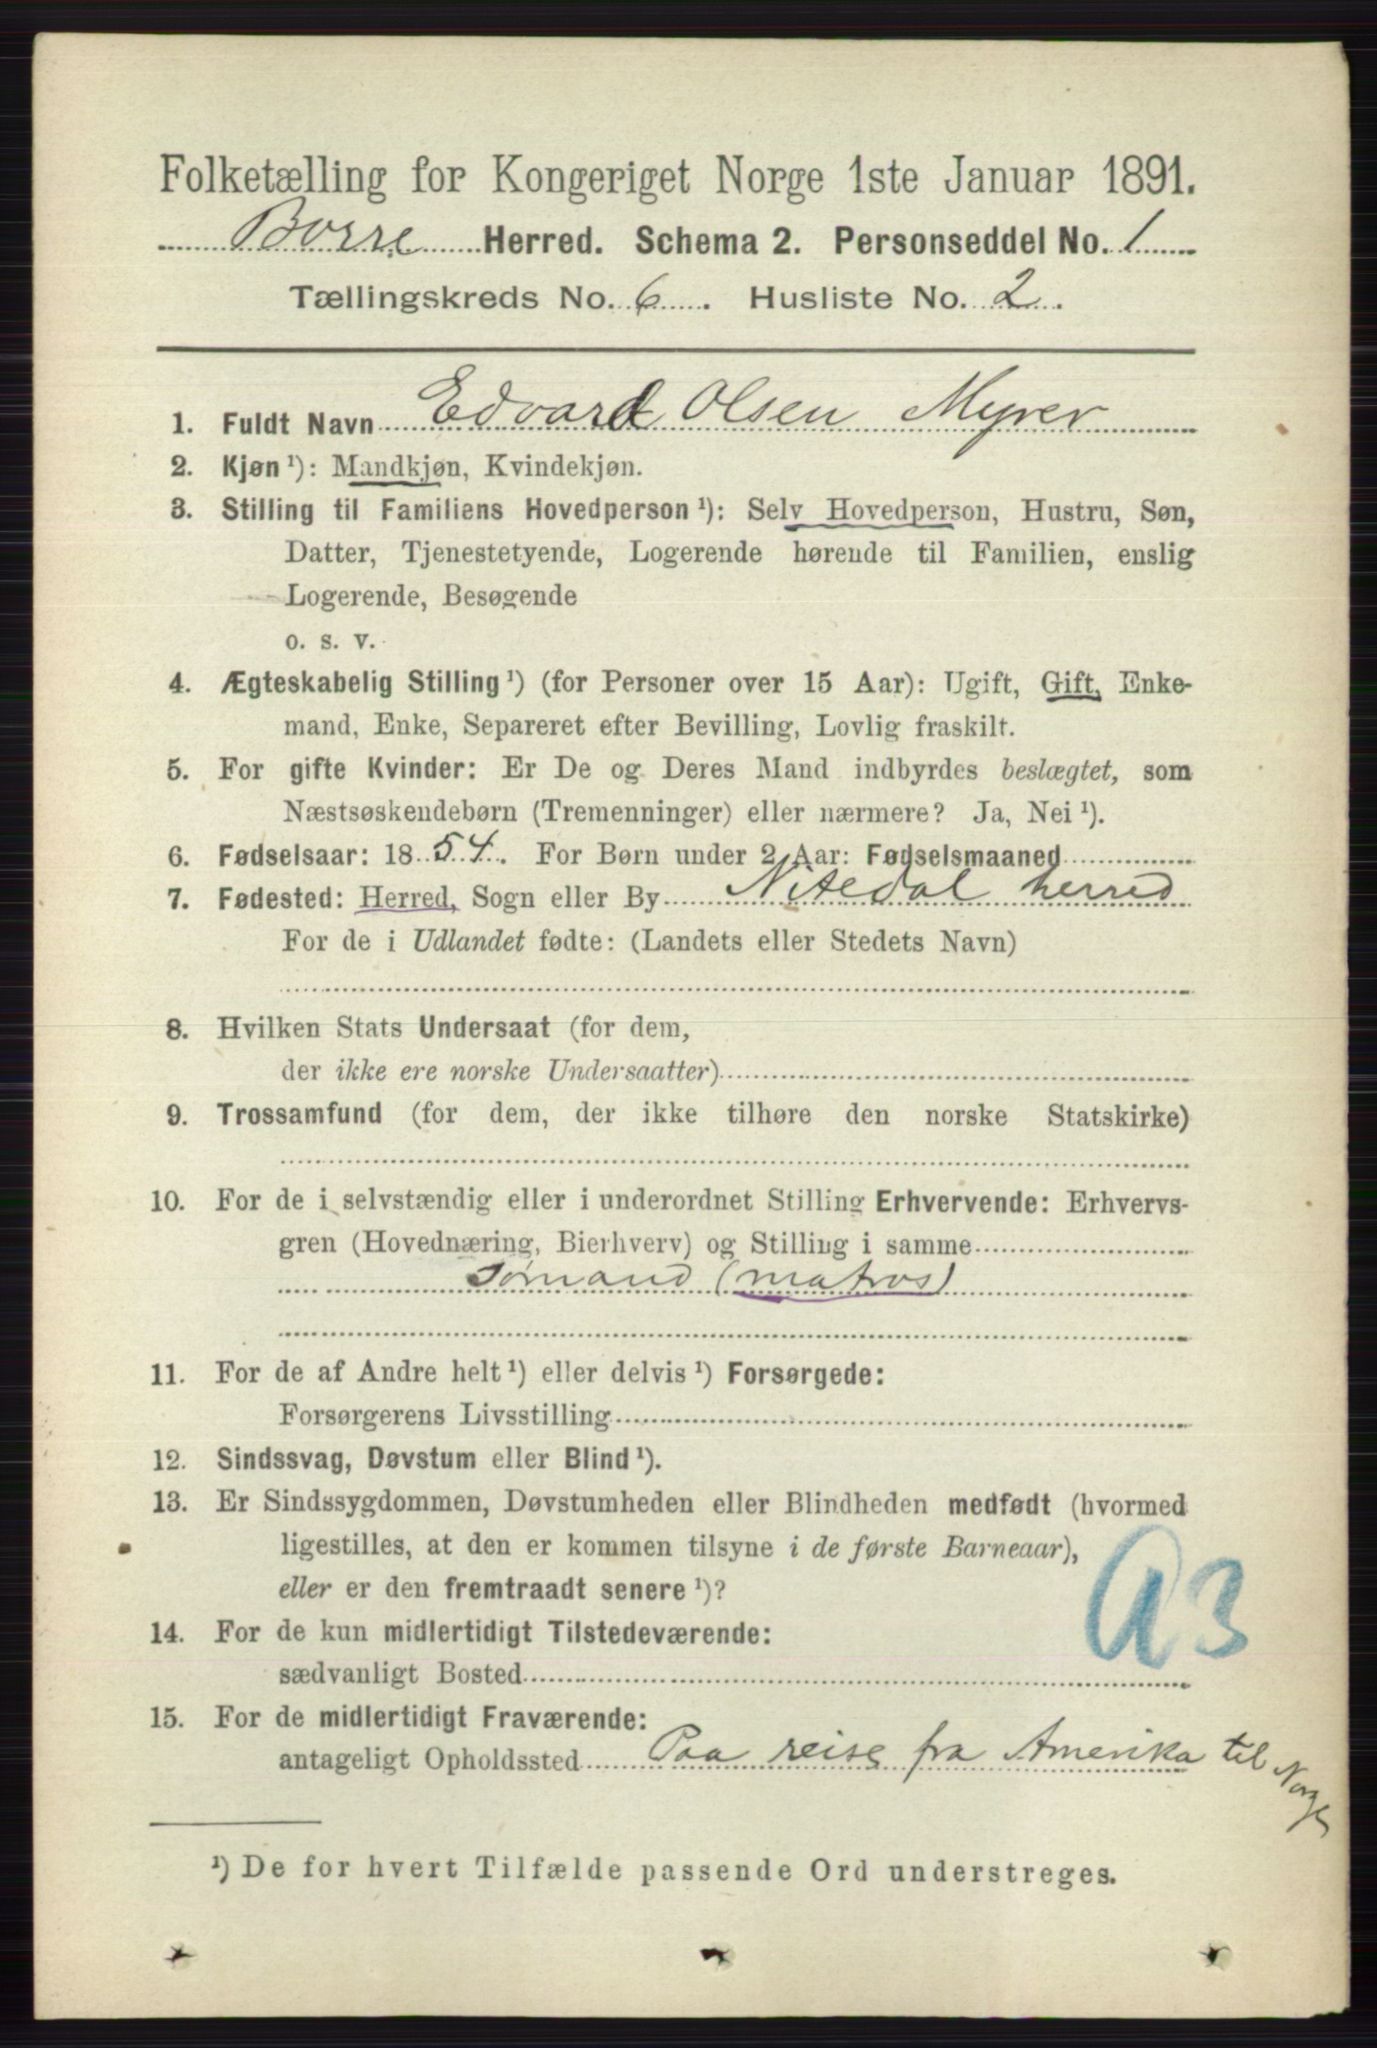 Folketælling for Kongeriget Norge 1ste Januar 1891.
Borre Herred. Schema 2. Personseddel No. 1
Tællingskreds No. 6. Husliste No. 2.
1. Fuldt Navn Edvard Olsen Myrer
2. Kjøn ¹): Mandkjøn, Kvindekjøn.
3. Stilling til Familiens Hovedperson ¹): Selv Hovedperson, Hustru, Søn,
Datter, Tjenestetyende, Logerende hørende til Familien, enslig
Logerende, Besøgende
o. s. v.
4. Ægteskabelig Stilling ¹) (for Personer over 15 Aar): Ugift, Gift, Enke-
mand, Enke, Separeret efter Bevilling, Lovlig fraskilt.
5. For gifte Kvinder: Er De og Deres Mand indbyrdes beslægtet, som
Næstsøskendebørn (Tremenninger) eller nærmere? Ja, Nei ¹).
6. Fødselsaar: 1854. For Børn under 2 Aar: Fødselsmaaned
7. Fødested: Herred, Sogn eller By Nitedal herred
For de i Udlandet fødte: (Landets eller Stedets Navn)
8. Hvilken Stats Undersaat (for dem,
der ikke ere norske Undersaatter)
9. Trossamfund (for dem, der ikke tilhøre den norske Statskirke)
10. For de i selvstændig eller i underordnet Stilling Erhvervende: Erhvervs-
gren (Hovednæring, Bierhverv) og Stilling i samme
Sømand (matros)
11. For de af Andre helt ¹) eller delvis ¹) Forsørgede:
Forsørgerens Livsstilling
12. Sindssvag, Døvstum eller Blind ¹).
13. Er Sindssygdommen, Døvstumheden eller Blindheden medfødt (hvormed
ligestilles, at den er kommen tilsyne i de første Barneaar),
eller er den fremtraadt senere ¹)?
a3
14. For de kun midlertidigt Tilstedeværende:
sædvanligt Bosted
15. For de midlertidigt Fraværende:
antageligt Opholdssted Paa reise fra Amerika til Norge
¹) De for hvert Tilfælde passende Ord understreges.